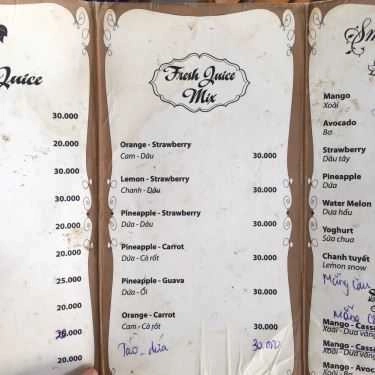 Juice
30.000
30.000
30.000
30.000
20.000
20.000
25.000
20.000
20.000
Fresh Juice
Mix
Orange - Strawberry
Cam - Dâu 30.000
Lemon - Strawberry
Chanh - Dâu 30.000
Pineapple - Strawberry
Dứa - Dâu 30.000
Pineapple - Carrot
Dứa - Cà rốt 30.000
Pineapple - Guava
Dứa - Ổi 30.000
Orange - Carrot
Cam - Cà rốt 30.000
Táo - dứa 30.000
Sm
Mango
Xoài
Avocado
Bơ
Strawberry
Dâu tây
Pineapple
Dứa
Water Melon
Dưa hấu
Yoghurt
Sữa chua
Chanh tuyết
Lemon snow
Mãng cầu
Mãng C
Mango - Cass
Xoài - Dưa vàng
Mango - Cassa
Xoài - Dưa vàng
Mango - Avoca